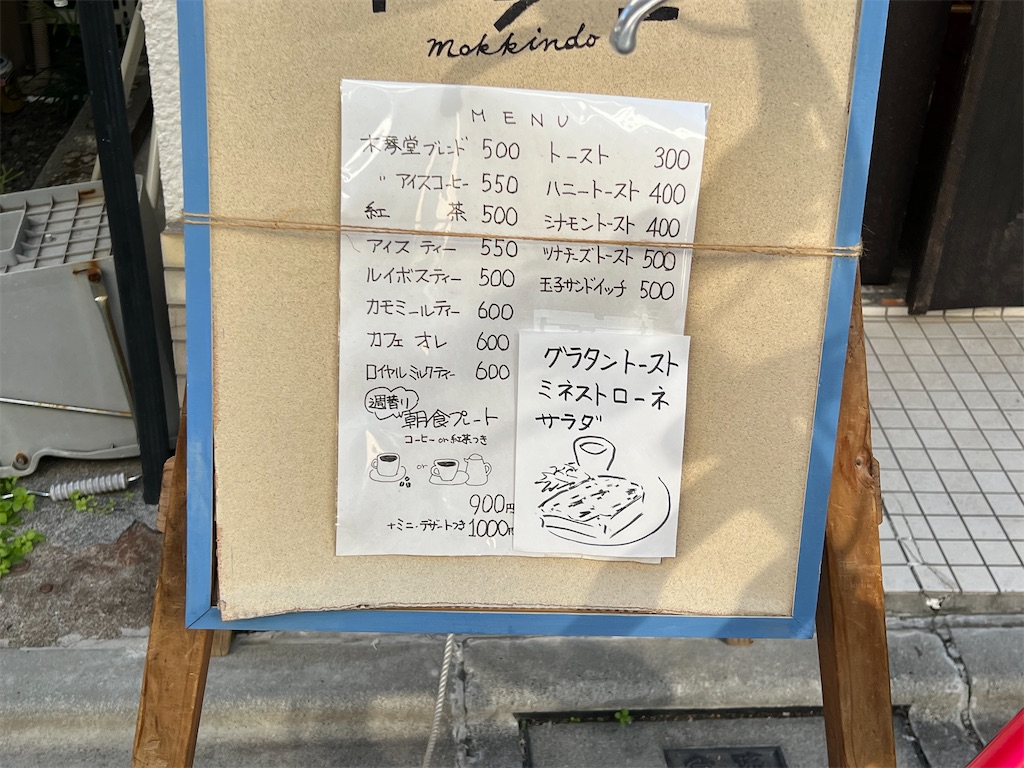 mokkindo
MENU
木琴堂ブレンド 500
〃 アイスコーヒー 550
紅茶 500
アイスティー 550
ルイボスティー 500
カモミールティー 600
カフェオレ 600
ロイヤルミルクティー 600
週替り
朝食プレート
コーヒー or 紅茶つき
or
900円
+ミニ・デザートつき 1000円
トースト 300
ハニートースト 400
シナモントースト 400
ツナチーズトースト 500
玉子サンドイッチ 500
グラタントースト
ミネストローネ
サラダ